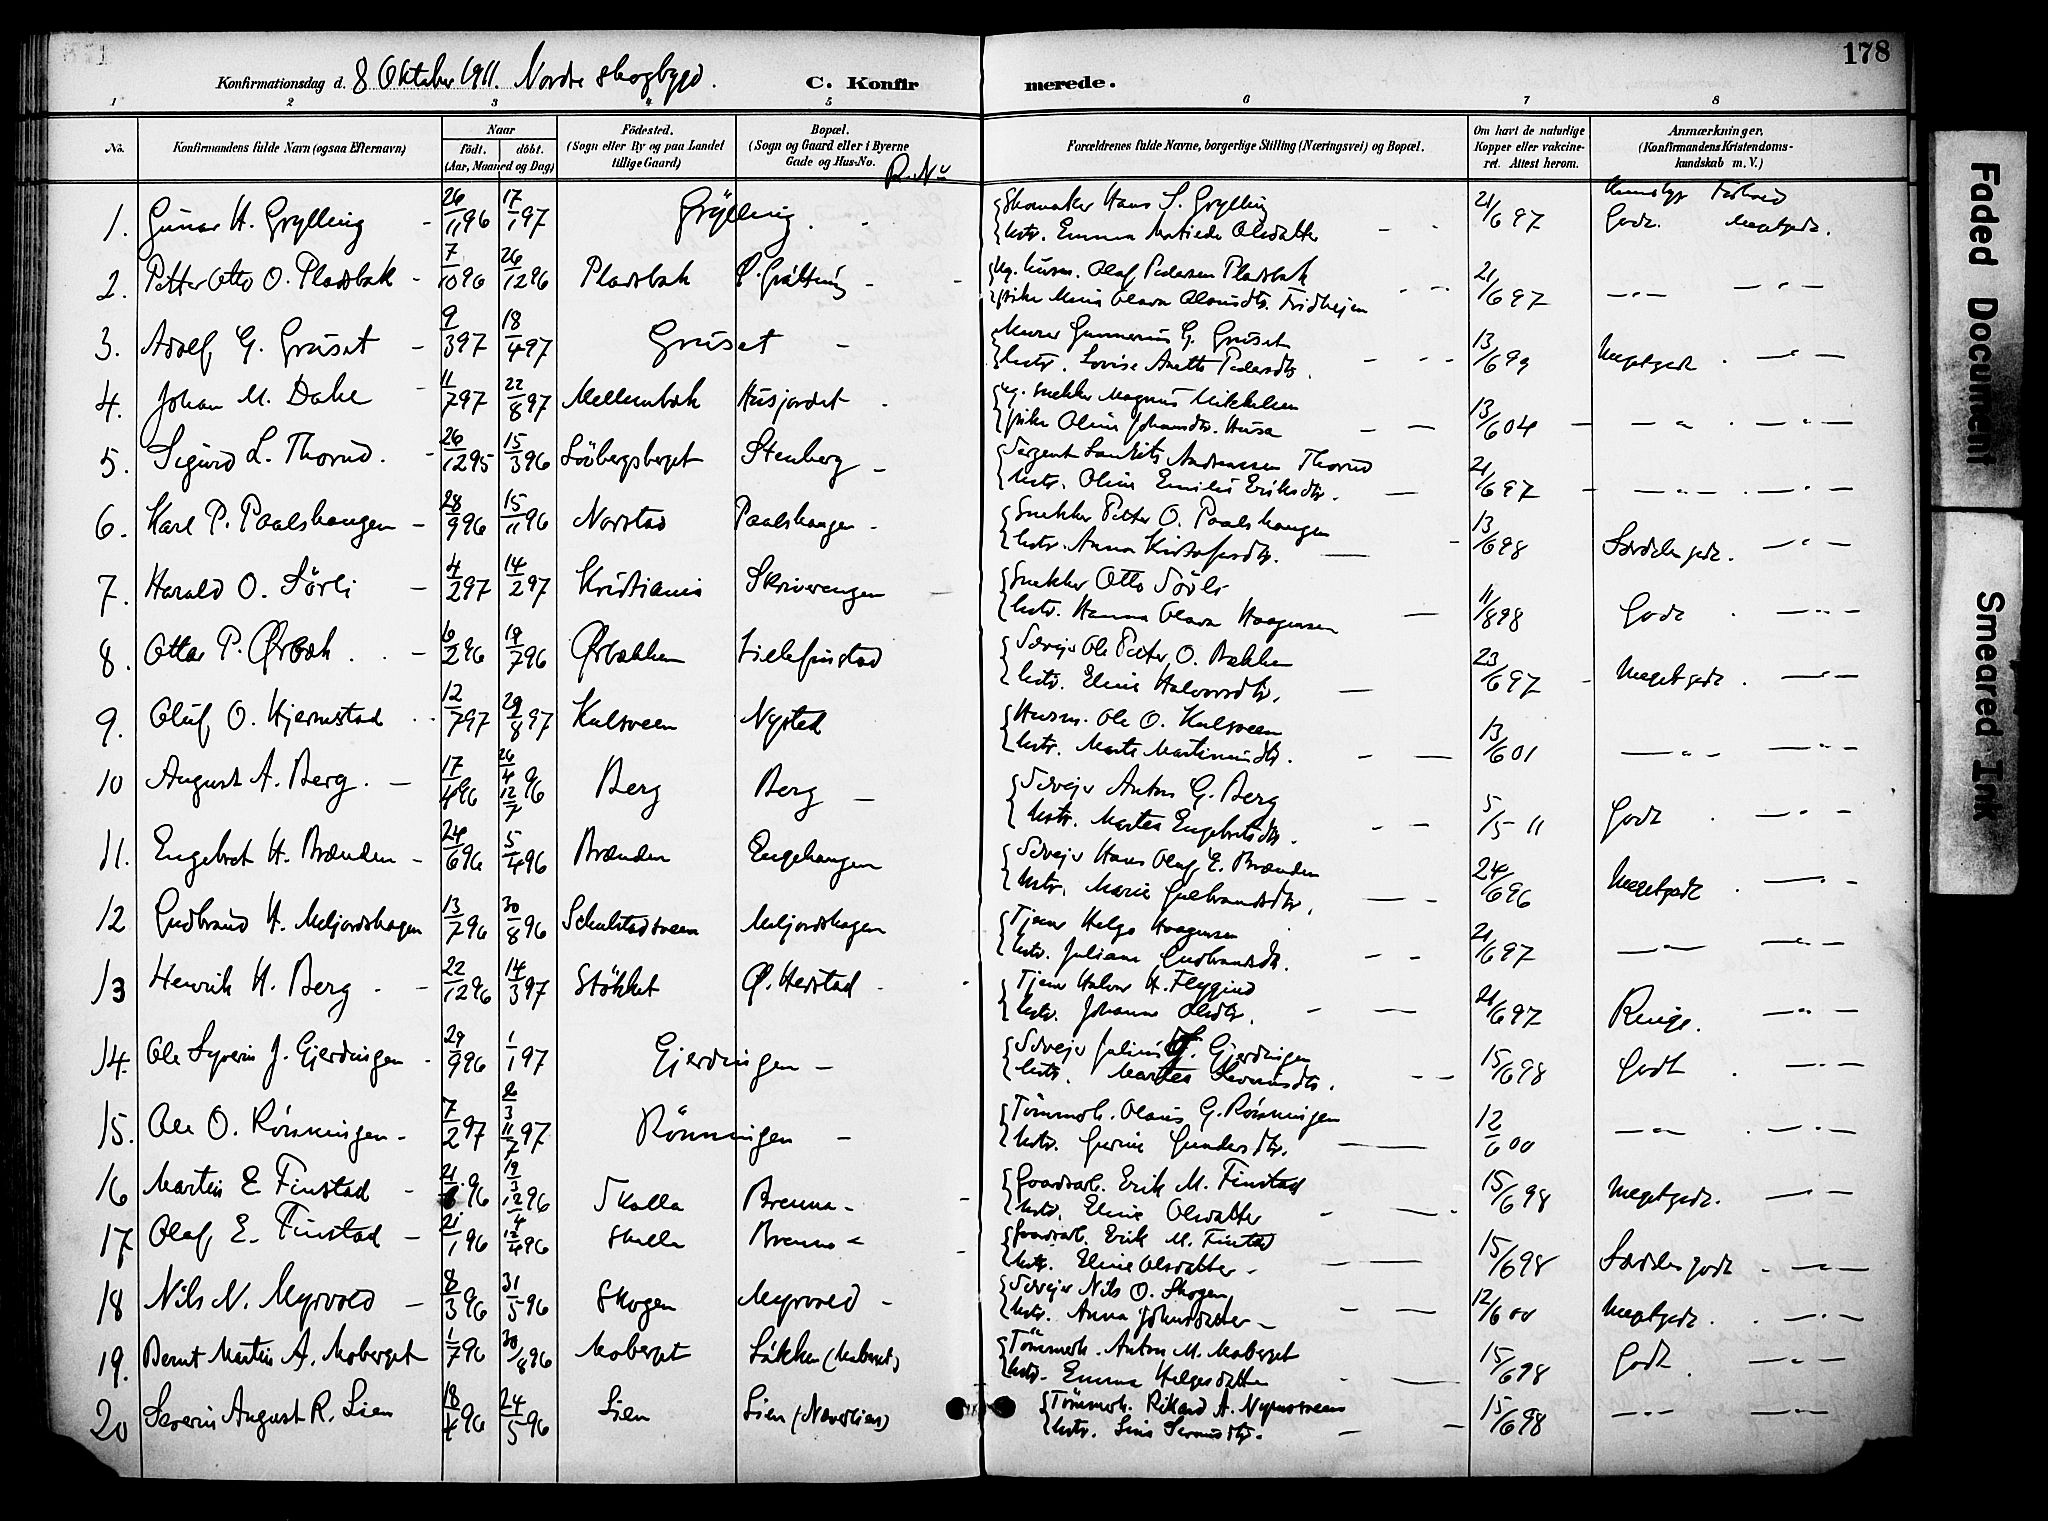 178
Konfirmationsdag d. 8 Oktober 1911. Nordre skogbygd. C. Konfirmerede.
1 2 3 4 5 6 7 8
No.
Konfirmandens fulde Navn (ogsaa Efternavn)
Naar
födt. döbt.
(Aar, Maaned og Dag)
Födested.
(Sogn eller By og paa Landet
tillige Gaard)
Bopæl.
(Sogn og Gaard eller i Byerne
Gade og Hus-No.
Forældrenes fulde Navne, borgerlige Stilling (Næringsvei) og Bopæl.
Om havt de naturlige
Kopper eller vakcine-
ret. Attest herom.
Anmærkninger.
(Konfirmandens Kristendoms-
kundskab m. V.)
1. Gunar H. Grylling - 26/11 96 17/1 97 Grylling
{Skomaker Hans S. Grylling
{Hstr. Emma Matilde Olsdatter 21/6 97 Godt. Megetgodt.
2. Petter Otto O. Pladsbak - 7/10 96 26/12 96 Pladsbak
Olaf Pedersen Pladsbak
21/6 97 -"- -"-
3. Adolf G. Gruset - 9/3 97 18/4 97 Gruset -
{Murer Gunnerius G. Gruset
{Hstr. Lovise Anette Pedersdtr. 13/6 99 Megetgodt -"-
4. Johan M. Dahl 11/7 97 22/8 97 Mellembæk Husjordet
{ug. snekker Magnus Mikkelsen
{pike Oline Johansdtr. Husa 13/6 04 -"- -"-
5. Sigurd L. Thorud. - 26/12 95 15/3 96 Sööbergsberget Stenberg -
{Sergent Lauritz Andreassen Thorud
{Hstr. Oline Emilie Eriksdtr. 21/6 97 -"- -"-
6. Karl P. Paalshaugen - 28/9 96 15/11 96 Norstad Paalshaugen -
{Snekker Petter O. Paalshaugen
{Hstr. Anna Kristofersdtr. 13/6 98 Særdeles godt. -"-
7. Harald O. Sörli - 4/2 97 14/2 97 Kristiania Skriverengen
{Snekker Otto Sörli
{Hstr. Hanna Olava Haagensen 11/8 98 Godt -"-
8. Ottar P. Ørbæk. - 6/2 96 19/7 96 Ørbækken Lillefinstad
{Selvejer Ole Petter O. Bækken
{Hstr. Eline Halvorsdtr. 23/6 97 Megetgodt. -"-
9. Oluf O. Hjermstad 12/7 97 29/8 97 Kulsveen Nysted
{Husm. Ole O. Kulsveen
{Hstr. Marte Martinusdtr. 13/6 01 -"- -"-
10 August A. Berg. - 17/4 96 26/4 12/7 96 Berg Berg -
{Selvejer Anton G. Berg
{Hstr. Martea Engebretsdtr. 5/5 11 Godt -"-
11. Engebret H. Brænden - 24/6 96 5/4 96 Brænden Engehaugen
{Selvejer Hans Olaf E. Brænden
{Hstr. Marie Gulbrandsdtr. 24/6 96 Megetgodt -"-
12 Gudbrand H. Meljordshagen 13/7 96 30/8 96 Skulstadsveen Meljordshagen
{Tjener Helge Haagensen
{Hstr. Juliane Gudbrandsdtr. 21/6 97 -"- -"-
13 Henrik H. Berg. - 22/12 96 14/3 97 Stökket Ø. Herstad
{Tjener Halvor H. Flygind
{Hstr. Johanne Olsdtr. 21/6 97 Ringe. -"-
14. Ole Syverin J. Gjerdingen - 29/9 96 1/1 97 Gjerdingen -
{Selvejer Julius J. Gjerdingen
{Hstr. Martea Syverinsdtr. 15/6 98 Godt -"-
15. Ole O. Rönningen - 7/2 97 2/3 11/7 97 Rönningen -
{Tömmerh. Olaus G. Rönningen
{Hstr. Gurine Gundersdtr. 12/6 00 -"- -"-
16 Martin E Finstad - 21/1 96 19/3 12/4 96 Skalla Brenna -
{Gaardarb. Erik M. Finstad
{Hstr. Eline Olsdatter 15/6 98 Megetgodt. -"-
17 Olaf E. Finstad - 21/1 96 12/4 96 Skalla Brenna -
{Gaardarb. Erik M. Finstad
{Hstr. Eline Olsdatter - 15/6 98 Særdeles godt -"-
18 Nils N. Myrvold - 8/3 96 31/5 96 Skogen Myrvold -
{Selvejer Nils O. Skogen
{Hstr. Anna Johnsdatter - 12/6 00 Megetgodt. -"-
19. Bernt Martin A. Moberget 1/7 96 30/8 96 Moberget Løkken (Moberget)
{Tömmerh. Anton M. Moberget
{Hstr. Emma Helgesdatter 15/6 98 Godt. -"-
20 Severin August R. Lien 18/4 96 24/5 96 Lien Lien (Næverlien)
{Tömmerh. Rikard A. Nymosveen
{Hstr. Lina Syverinsdtr. - 15/6 98 -"- -"-
Faded Document
Smeared Ink